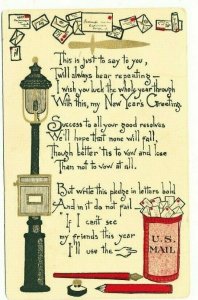 This is just to say to you,
'Twill always bear repeating —
I wish you luck the whole year through
With this, my New Year's Greeting.
Success to all your good resolves
We'll hope that none will fail,
Though better 'tis to vow and lose
Then not to vow at all.
But write this pledge in letters bold
And in it do not fail —
"If I can't see
my friends this year
I'll use the
U.S.
MAIL